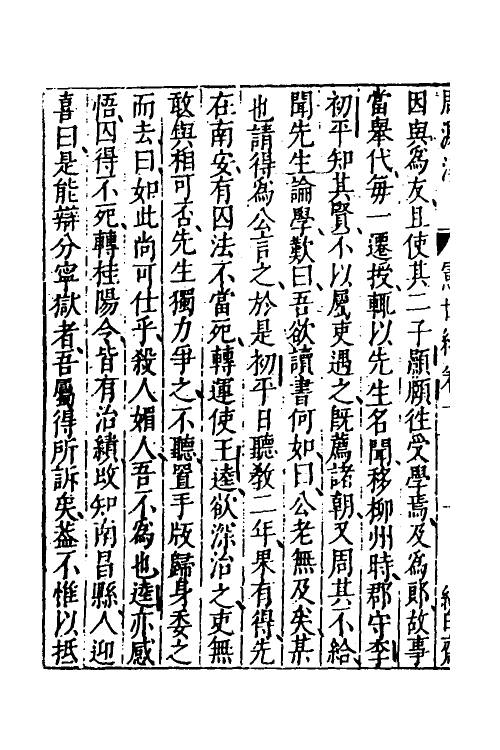 因與為友且使其二子顥願往受學焉及為郎故事
當舉代每一遷授輒以先生名聞移柳州時郡守李
初平知其賢不以屬吏遇之既薦諸朝又周其不給
聞先生論學歎曰吾欲讀書何如曰公老無及矣某
也請得為公言之於是初平日聽教二年果有得先
在南安有囚法不當死轉運使王逵欲深治之吏無
敢與相可否先生獨力爭之不聽置手版歸身委之
而去曰如此尚可仕乎殺人媚人吾不為也逵亦感
悟囚得不死轉桂陽令皆有治績改知南昌縣人迎
喜曰是能辯分寧獄者吾屬得所訴矣葢不惟以抵